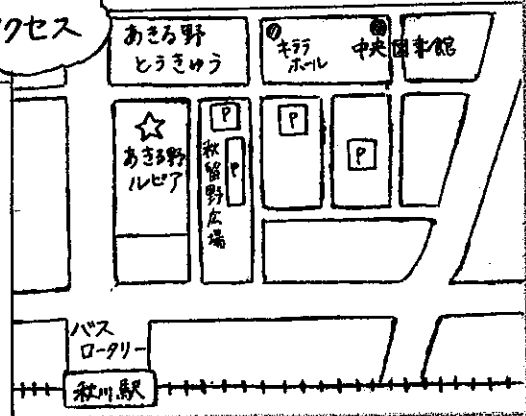 クセス
あきる野
とうきゅう
キララ
ホール
中央図書館
あきる野
ルピア
P
P
秋留野広場
P
P
バス
ロータリー
秋川駅